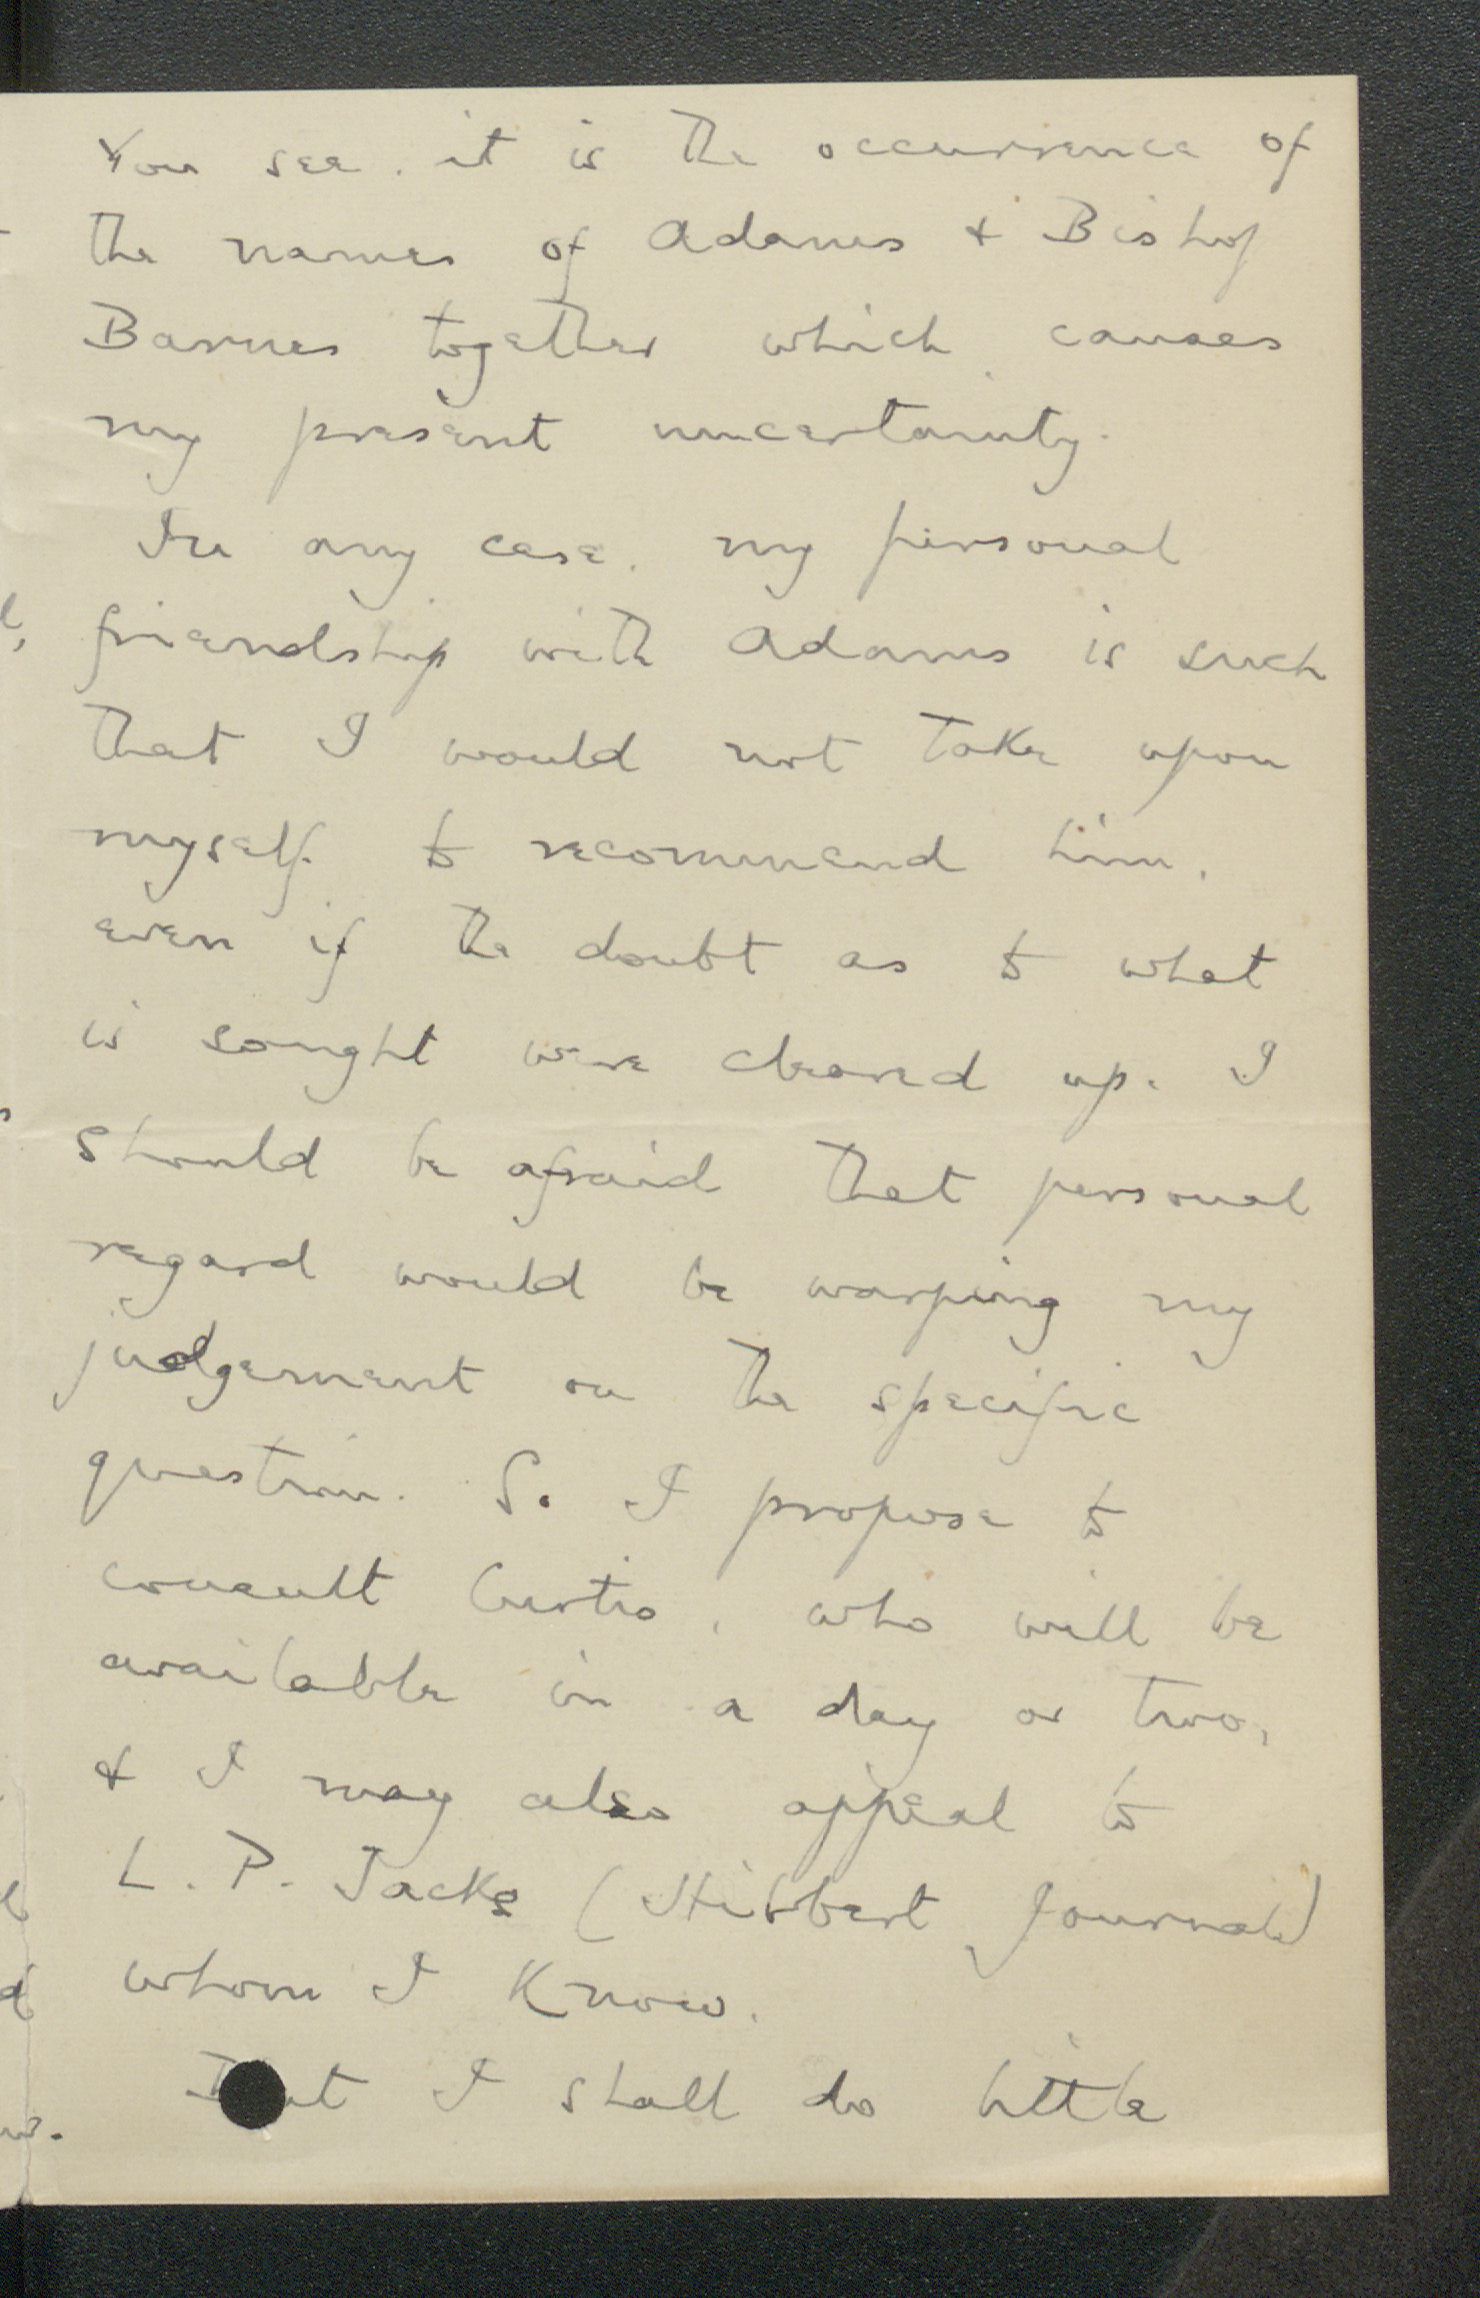 You see, it is the occurrence of
the names of Adams & Bishop
Barnes together which causes
my present uncertainty.
In any case, my personal
friendship with Adams is such
that I would not take upon
myself to recommend him,
even if the doubt as to what
is sought were cleared up. I
should be afraid that personal
regard would be warping my
judgement on the specific
question. So I propose to
consult Curtis, who will be
available in a day or two,
& I may also appeal to
L. P. Jacks (Hibbert Journal)
whom I know.
But I shall do little